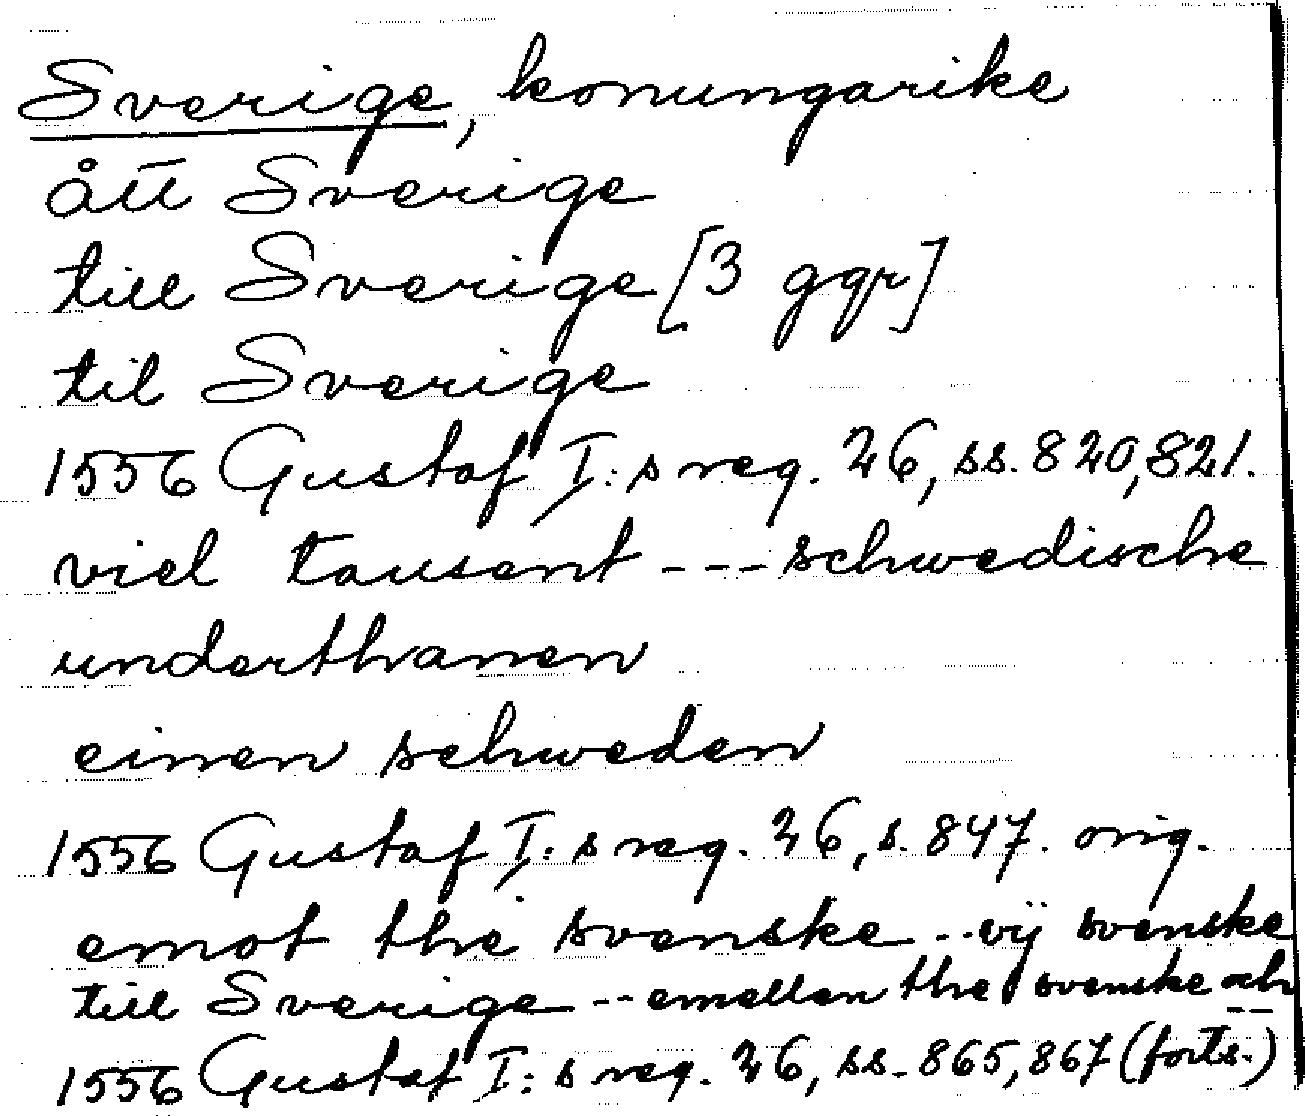 Sverige, konungarike
ått Sverige
till Sverige [3 ggr]
til Sverige
1556 Gustaf I:s reg. 26, ss. 820, 821.
viel tausent --- schwedische
underthanen
einen schweden
1556 Gustaf I:s reg. 26, s. 847. orig.
emot the svenske -- vij svenske
till Sverige -- emellan the svenske och --
1556 Gustaf I:s reg. 26, ss. 865, 867 (forts.)